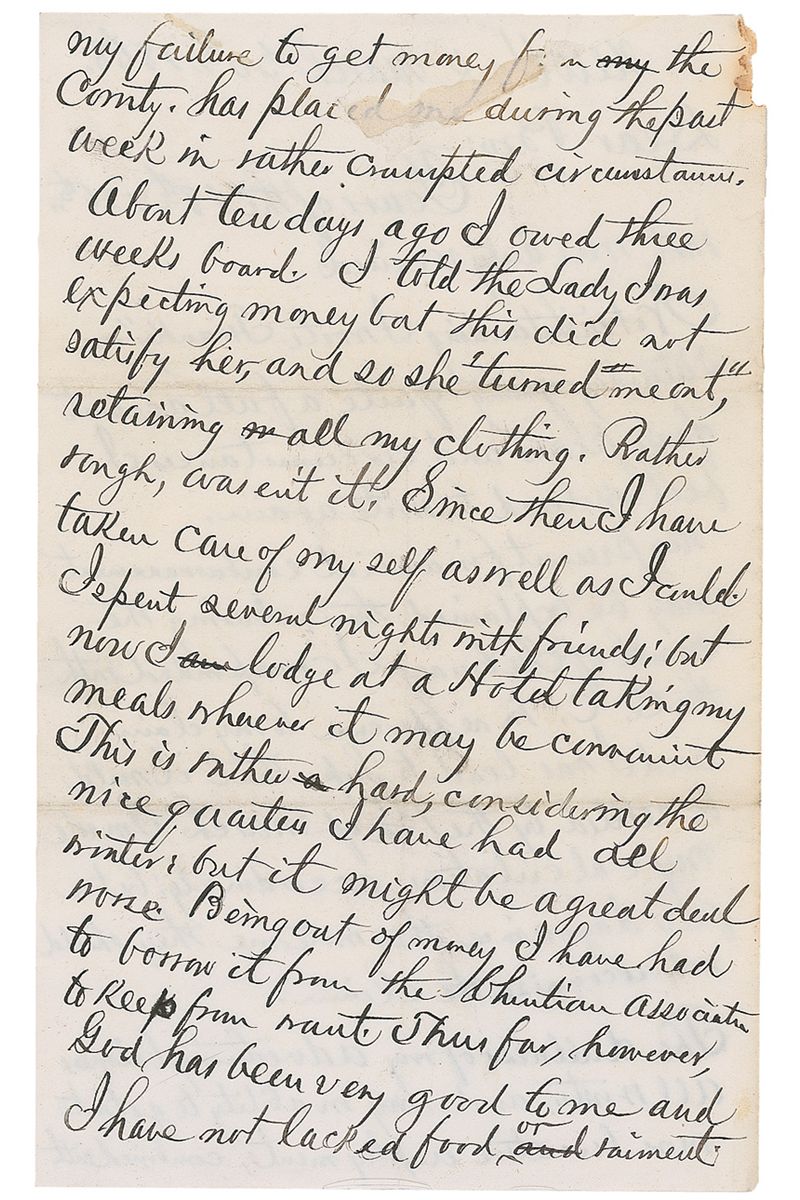 my failure to get money my the
County. has placed me during the past
week in rather crampted circumstances.
About ten days ago I owed three
weeks board. I told the Lady I was
expecting money but this did not
satisfy her, and so she "turned" "me out,"
retaining all my clothing. Rather
rough, wasen't it! Since then I have
taken care of my self as well as I could.
I spent several nights with friends; but
now I am lodge at a Hotel taking my
meals wherever it may be convenient
This is rather a hard, considering the
nice quarters I have had all
winter; but it might be a great deal
worse. Being out of money I have had
to borrow it from the Christian Association
to keep from want. Thus far, however,
God has been very good to me and
I have not lacked food, or and raiment.